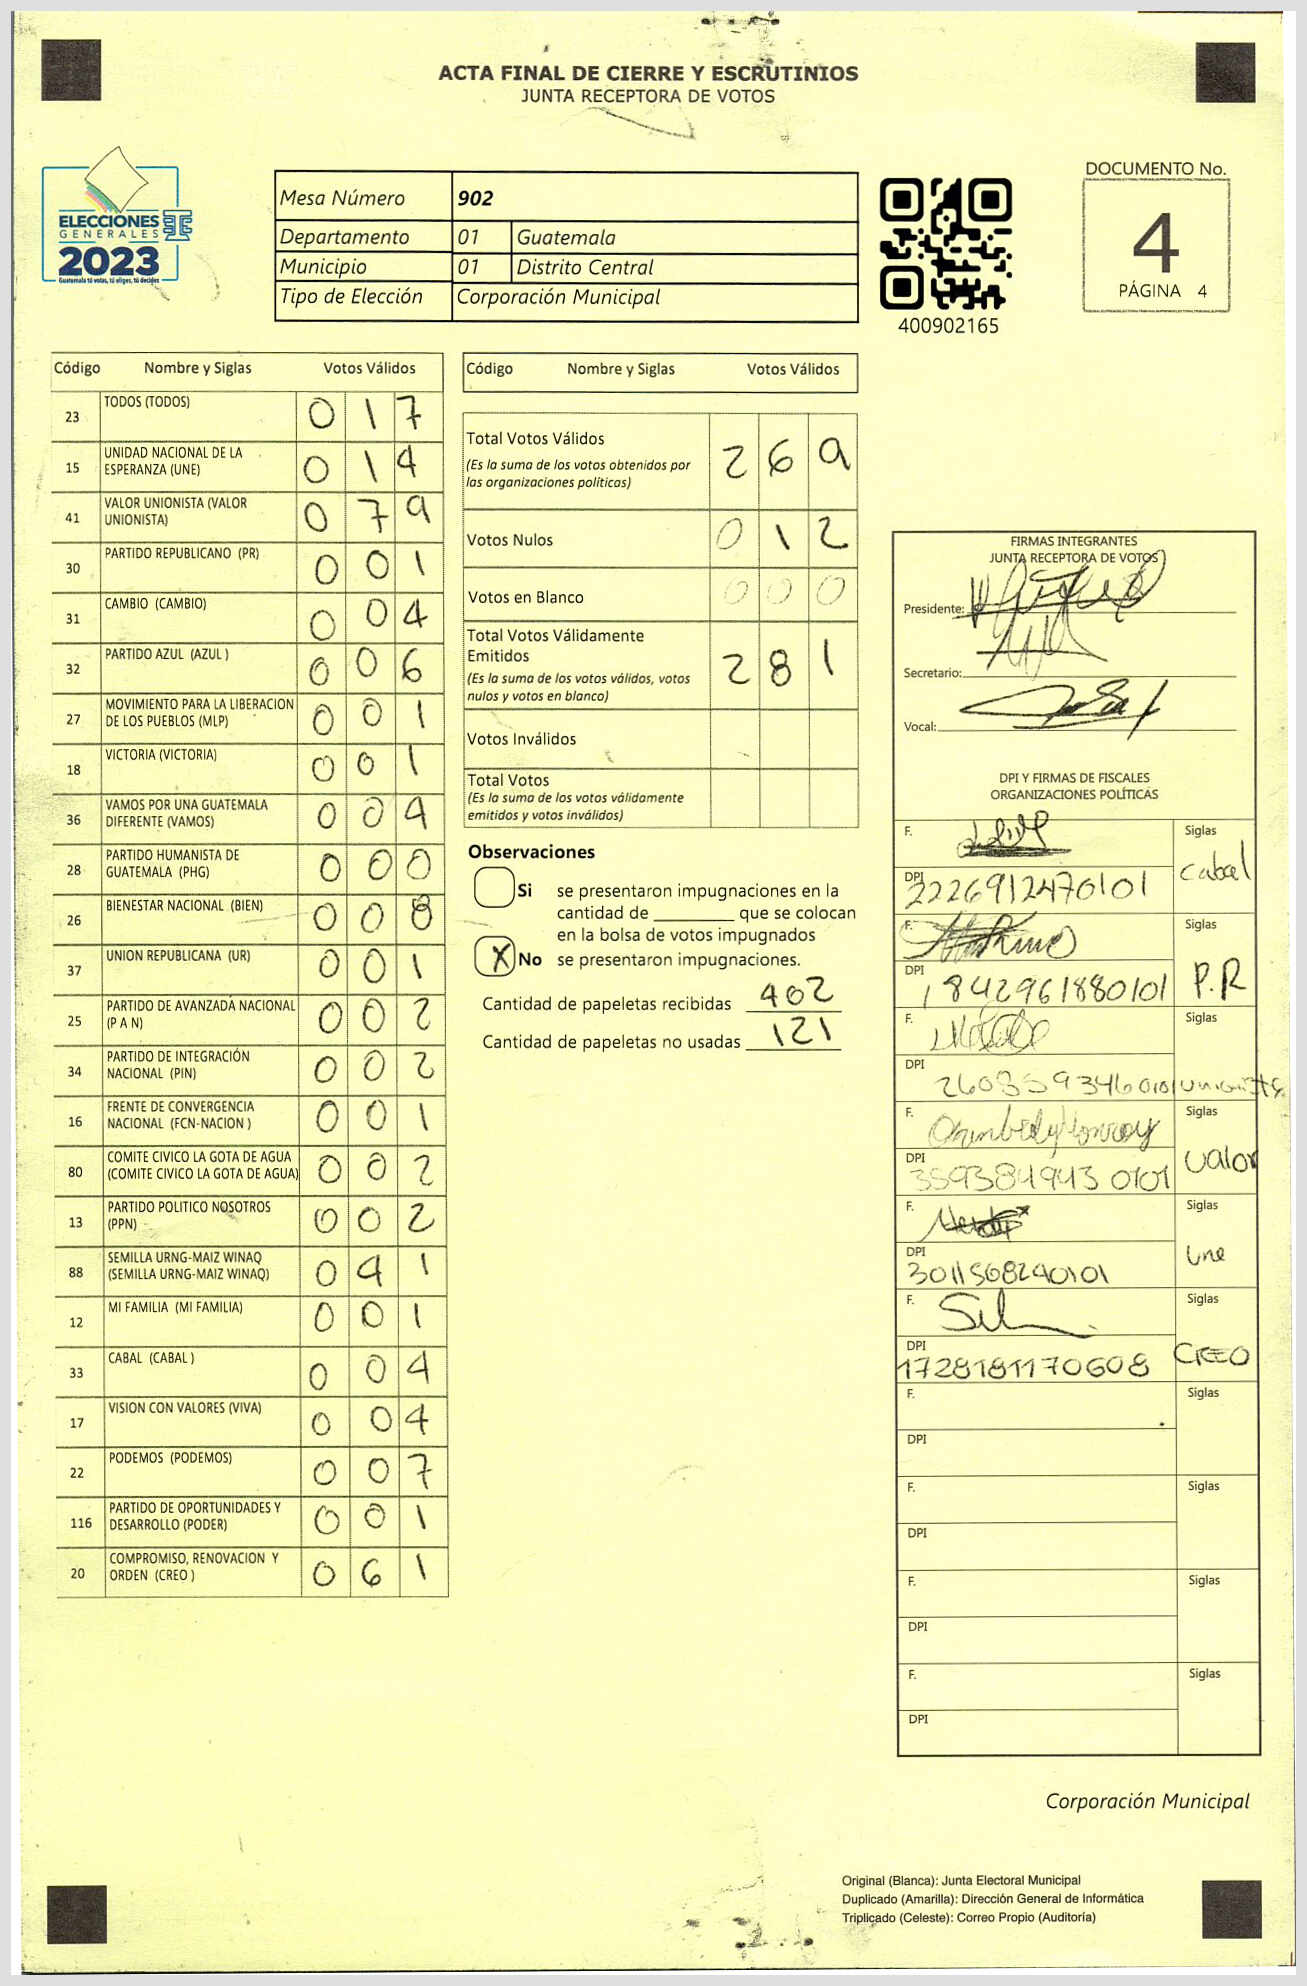 ACTA FINAL DE CIERRE Y ESCRUTINIOS
JUNTA RECEPTORA DE VOTOS
ELECCIONES
GENERALES
2023
Guatemala tú votas, tú eliges, tú decides
Mesa Número 902
Departamento 01 Guatemala
Municipio 01 Distrito Central
Tipo de Elección Corporación Municipal
400902165
DOCUMENTO No.
4
PÁGINA 4
Código Nombre y Siglas Votos Válidos
23 TODOS (TODOS) 0 1 7
15 UNIDAD NACIONAL DE LA ESPERANZA (UNE) 0 1 4
41 VALOR UNIONISTA (VALOR UNIONISTA) 0 7 9
30 PARTIDO REPUBLICANO (PR) 0 0 1
31 CAMBIO (CAMBIO) 0 0 4
32 PARTIDO AZUL (AZUL ) 0 0 6
27 MOVIMIENTO PARA LA LIBERACION DE LOS PUEBLOS (MLP) 0 0 1
18 VICTORIA (VICTORIA) 0 0 1
36 VAMOS POR UNA GUATEMALA DIFERENTE (VAMOS) 0 0 4
28 PARTIDO HUMANISTA DE GUATEMALA (PHG) 0 0 0
26 BIENESTAR NACIONAL (BIEN) 0 0 8
37 UNION REPUBLICANA (UR) 0 0 1
25 PARTIDO DE AVANZADA NACIONAL (P A N) 0 0 2
34 PARTIDO DE INTEGRACIÓN NACIONAL (PIN) 0 0 2
16 FRENTE DE CONVERGENCIA NACIONAL (FCN-NACION ) 0 0 1
80 COMITE CIVICO LA GOTA DE AGUA (COMITE CIVICO LA GOTA DE AGUA) 0 0 2
13 PARTIDO POLITICO NOSOTROS (PPN) 0 0 2
88 SEMILLA URNG-MAIZ WINAQ (SEMILLA URNG-MAIZ WINAQ) 0 4 1
12 MI FAMILIA (MI FAMILIA) 0 0 1
33 CABAL (CABAL ) 0 0 4
17 VISION CON VALORES (VIVA) 0 0 4
22 PODEMOS (PODEMOS) 0 0 7
116 PARTIDO DE OPORTUNIDADES Y DESARROLLO (PODER) 0 0 1
20 COMPROMISO, RENOVACION Y ORDEN (CREO ) 0 6 1
Código Nombre y Siglas Votos Válidos
Total Votos Válidos 2 6 9
(Es la suma de los votos obtenidos por
las organizaciones políticas)
Votos Nulos 0 1 2
Votos en Blanco 0 0 0
Total Votos Válidamente
Emitidos 2 8 1
(Es la suma de los votos válidos, votos
nulos y votos en blanco)
Votos Inválidos
Total Votos
(Es la suma de los votos válidamente
emitidos y votos inválidos)
Observaciones
Si se presentaron impugnaciones en la
cantidad de ________ que se colocan
en la bolsa de votos impugnados
X No se presentaron impugnaciones.
Cantidad de papeletas recibidas 402
Cantidad de papeletas no usadas 121
FIRMAS INTEGRANTES
JUNTA RECEPTORA DE VOTOS
Presidente:
Secretario:
Vocal:
DPI Y FIRMAS DE FISCALES
ORGANIZACIONES POLÍTICAS
F. Siglas
DPI 2226912470101 Cabal
F. Siglas
DPI 1842961880101 P.R
F. Siglas
DPI 2608593460101 unionista
F. Siglas
DPI 3593849430101 valor
F. Siglas
DPI 3011568240101 une
F. Siglas
DPI 1728181170608 CREO
F. Siglas
DPI
F. Siglas
DPI
F. Siglas
DPI
F. Siglas
DPI
Corporación Municipal
Original (Blanca): Junta Electoral Municipal
Duplicado (Amarilla): Dirección General de Informática
Triplicado (Celeste): Correo Propio (Auditoría)